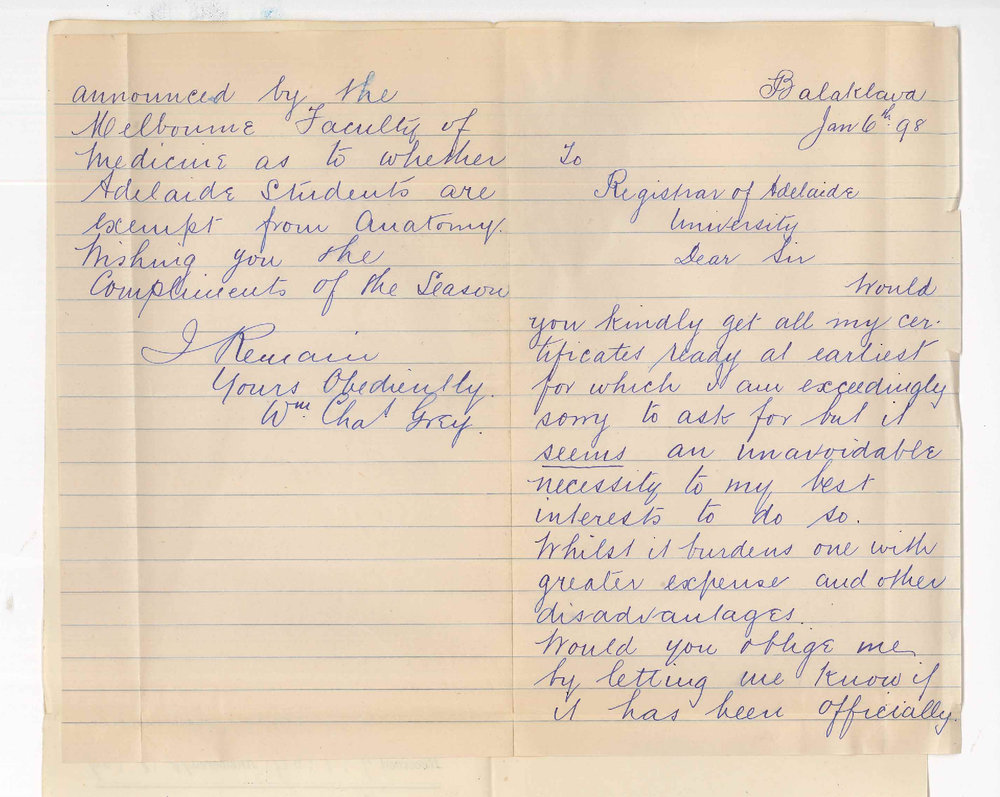 Balaklava
Jan 6th 98
To
Registrar of Adelaide
University
Dear Sir
Would
you kindly get all my cer-
tificates ready at earliest
for which I am exceedingly
sorry to ask for but it
seems an unavoidable
necessity to my best
interests to do so.
Whilst it burdens one with
greater expense and other
disadvantages.
Would you oblige me
by letting me know if
it has been officially
announced by the
Melbourne Faculty of
Medicine as to whether
Adelaide Students are
exempt from Anatomy.
Wishing you the
Compliments of the Season
I Remain
Yours Obediently.
Wm Chas Grey.